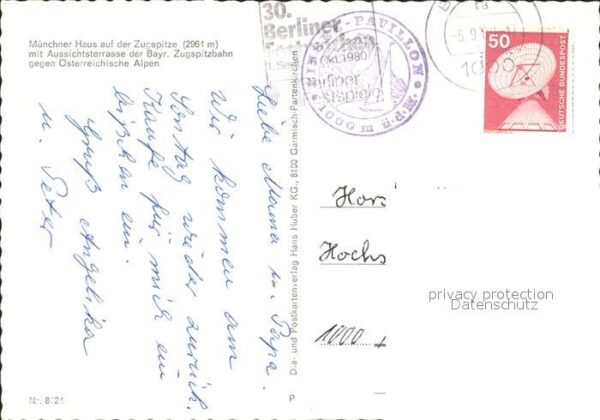 Münchner Haus auf der Zugspitze (2961 m)
mit Aussichtsterrasse der Bayr. Zugspitzbahn
gegen Österreichische Alpen
Liebe Mama u. Papa.
Wir kommen am
Sonntag wieder zurück.
Kaufe für mich ein
bißchen ein.
Gruß Angelika
u. Peter
Nr. 8124
Dia- und Postkartenverlag Hans Huber KG., 8100 Garmisch-Partenkirchen
P
30.
Berliner
1980
PAVILLON
1000
50
DEUTSCHE BUNDESPOST
Hors
Hochs
1000
privacy protection
Datenschutz